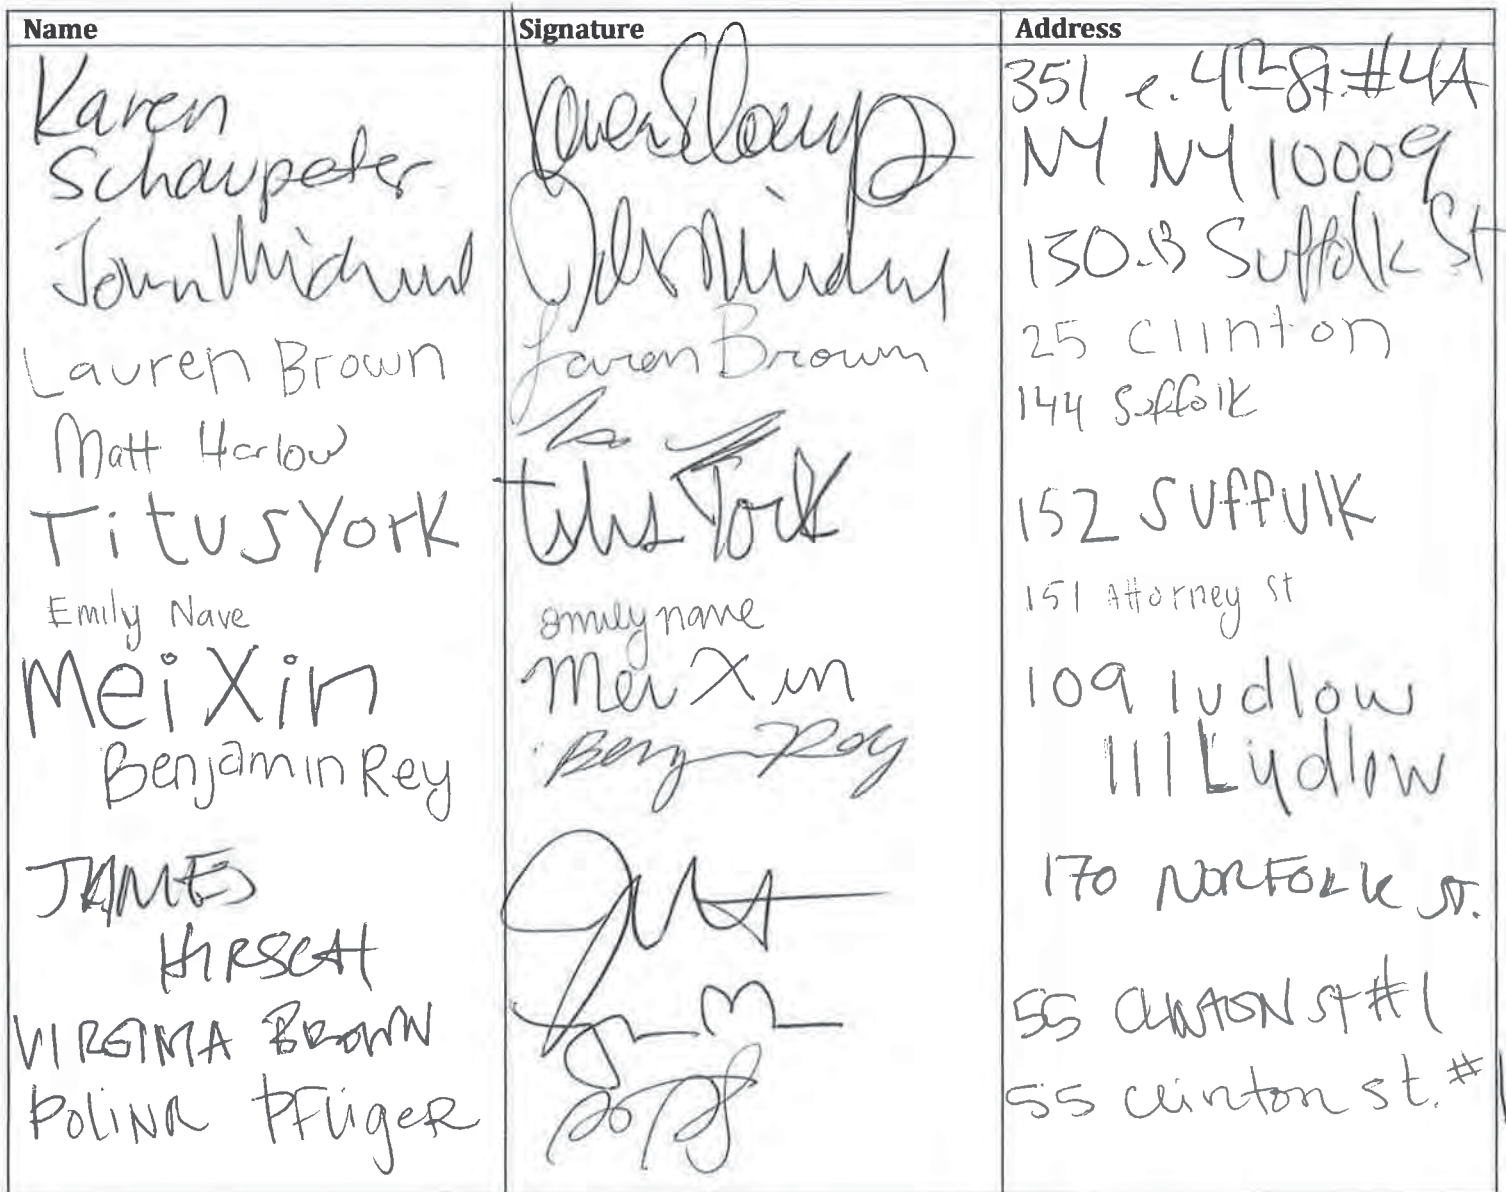 Name Signature Address
Karen 351 e. 4th St. #4A
Schaupeter NY NY 10009
John Michael 130.B Suffolk St
Lauren Brown Lauren Brown 25 Clinton
Matt Harlow 144 Suffolk
Titus York Titus York 152 Suffulk
Emily Nave emily nave 151 Attorney St
Mei Xin Mei Xin 109 ludlow
Benjamin Rey Benj Rey 111 Ludlow
JAMES 170 NORFOLK ST.
HIRSCH
VIRGINIA BROWN 55 CLINTON ST #1
POLINA PFLUGER 55 clinton st. #